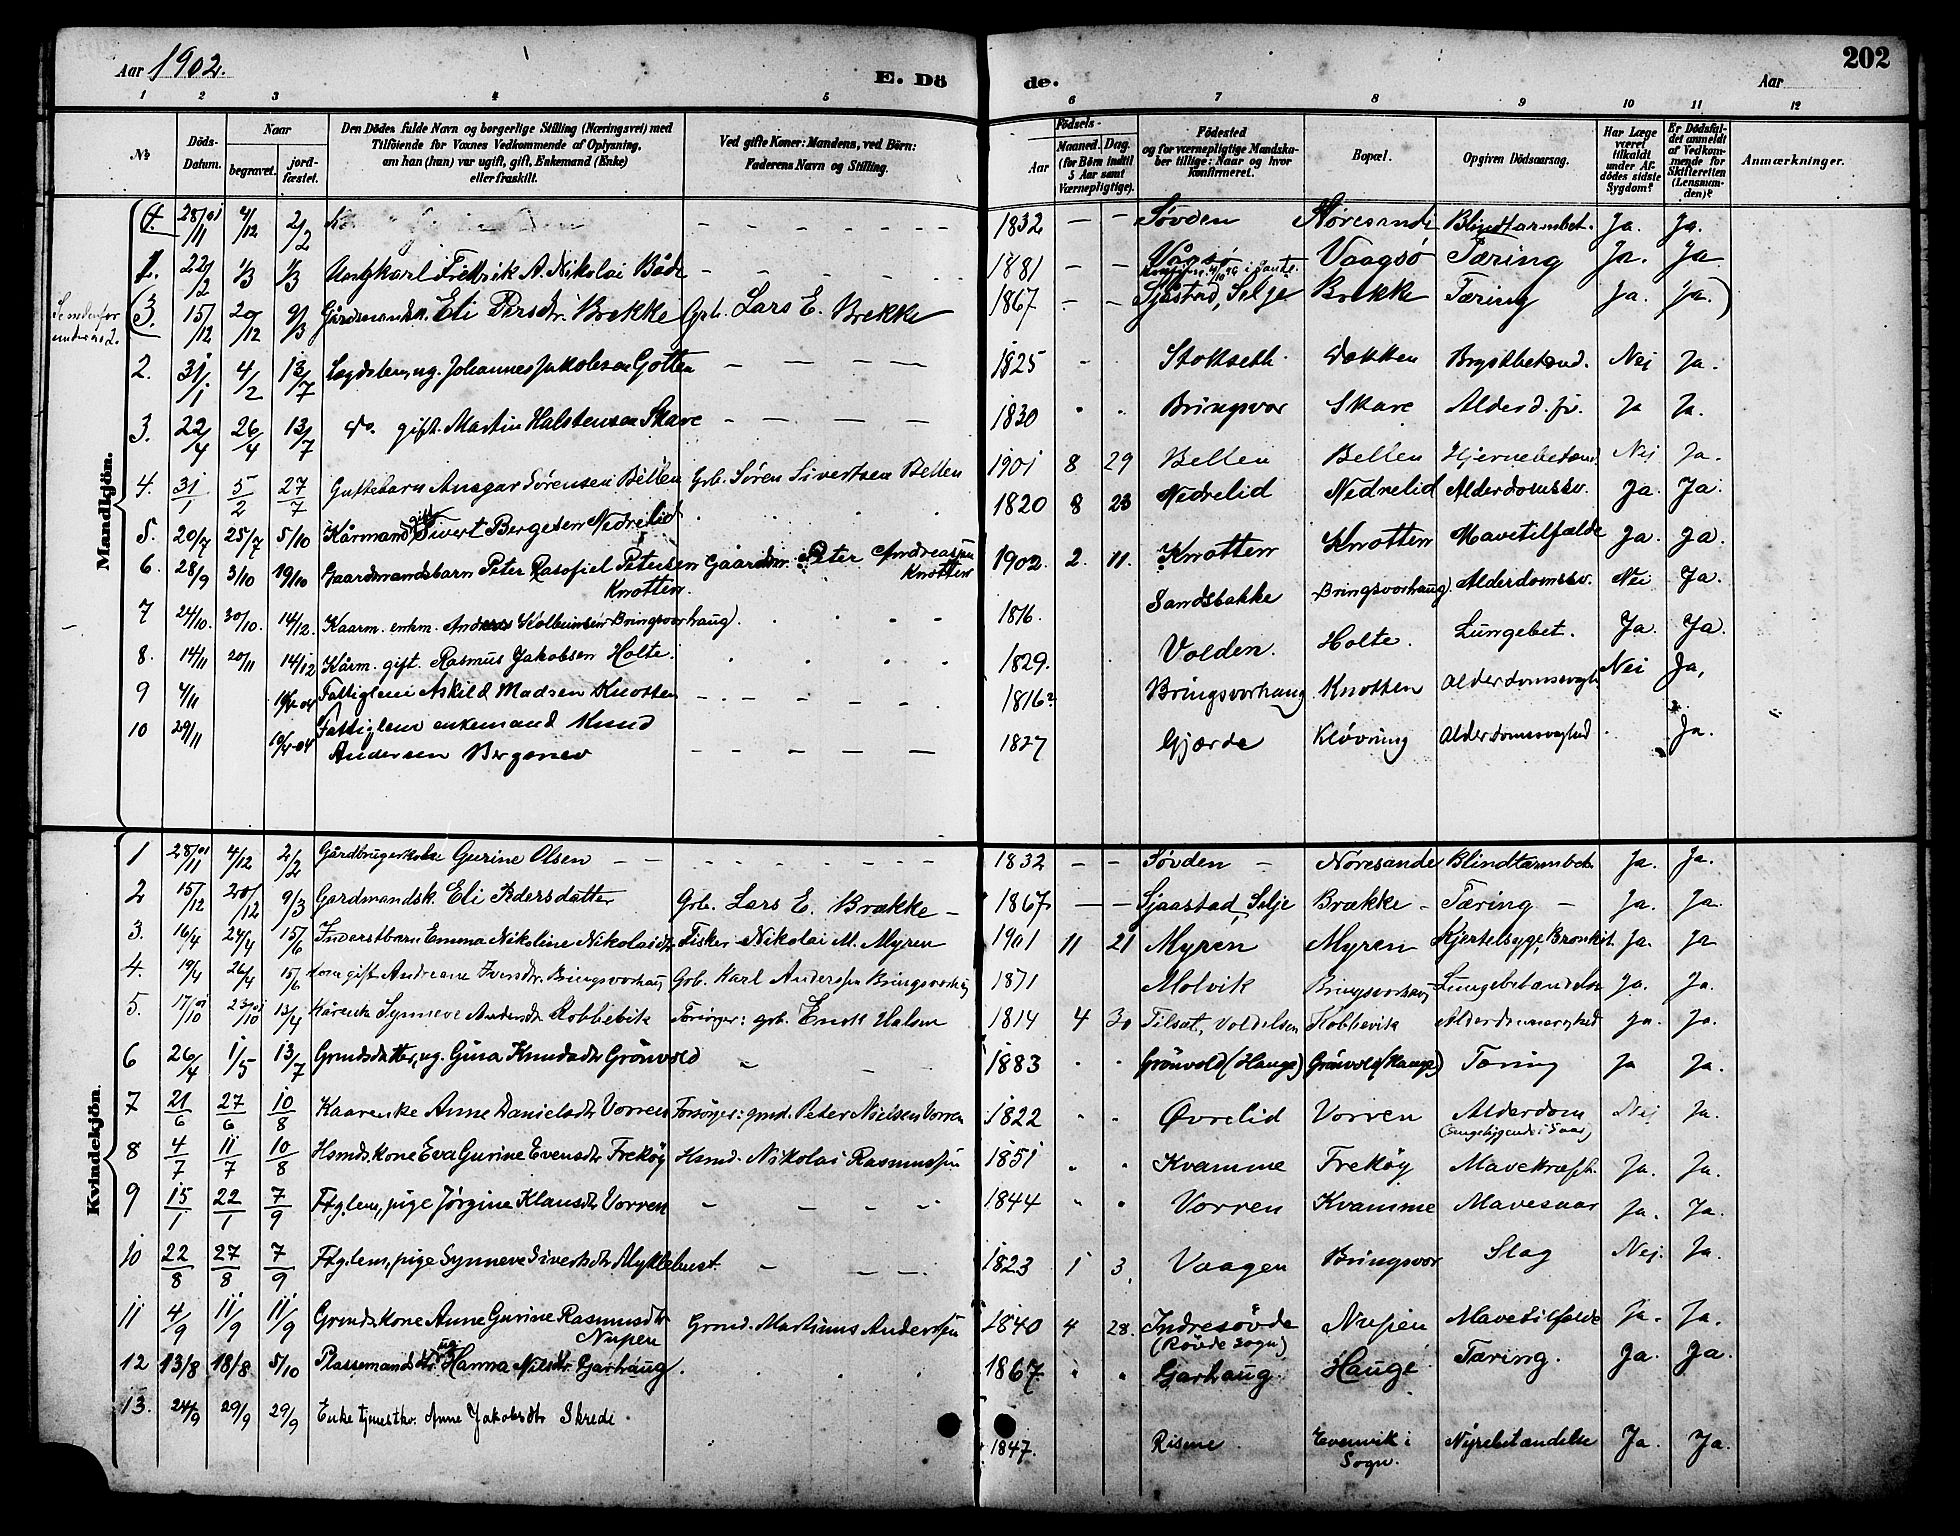 Aar 1902.
E. Dö
de.
Aar
202
1 2 3 4 5 6 7 8 9 10 11 12
No.
Döds-Datum.
Naar
begravet.
jord-fæstet.
Den Dödes fulde Navn og borgerlige Stilling (Næringsvei) med
Tilföiende for Voxnes Vedkommende af Oplysning,
om han (hun) var ugift, gift, Enkemand (Enke)
eller fraskilt.
Ved gifte Koner: Mandens, ved Börn:
Faderens Navn og Stilling.
Födsels-
Aar
Maaned. Dag.
(for Börn indtil
5 Aar samt
Værnepligtige).
Födested
og for værnepligtige Mandska-
ber tillige: Naar og hvor
konfirmeret.
Bopæl.
Opgiven Dödsaarsag.
Har Læge
været
tilkaldt
under Af-
dödes sidste
Sygdom?
Er Dödsfal-
det anmeldt
af Vedkom-
mende for
Skifteretten
(Lensman-
den)?
Anmærkninger.
Mandkjön.
28/11 01 4/12 2/2 – – 1832 – – Søvden Nøresande Blindtarmbet. Ja. Ja.
22/2 1/3 1/3 Ungkarl Fredrik A. Nikolai Både – – 1881 – – Vågsø Vaagsø Tæring Ja. Ja
(3. 15/12 20/12 9/3 Gårdmandsk. Eli Persdtr. Brekke Grb. Lars E. Brekke 1867 – – Sjåstad, Selje Brekke Tæring Ja. Ja.)
Se nedenfor
under no 2.
2. 31/1 4/2 13/7 Lægdslem, ug. Johannes Jakobsen Gotten – – – 1825 Stokseth Dokken Brystbetænd. Nei Ja.
3. 22/4 26/4 13/7 do. gift. Martin Halstensen Skare – – – 1830 Bringsvor Skare Alderd.sv. Ja Ja.
4. 31/1 5/2 27/7 Guttebarn Ansgar Sørensen Bellen Grb. Søren Sivertsen Bellen 1901 8 29 Bellen Bellen Hjernebetænd. Nei Ja.
5. 20/7 25/7 5/10 Kårmand gift Sivert Bergesen Nedrelid 1820 8 23 Nedrelid Nedrelid Alderdomssv. Ja Ja.
6. 28/9 3/10 19/10 Gaardmandsbarn Peter Rasofiel Petersen Gaardm. Peter Andreassen 1902. 2. 11. Knotten Knotten Mavetilfælde Ja. Ja.
Knotten. Knotten
7 24/10. 30/10. 14/12. Kaarm. enkm. Anders Kolbeinsen Bringsvorhaug) 1816. Sandsbakke Bringsvorhaug) Alderdomssv. Nei Ja.
8. 14/11 20/11 14/12 Kårm. gift. Rasmus Jakobsen Holte. 1829. Volden. Holte. Lungebet. Ja. Ja.
9 4/11 Fattiglem Askild Madsen Knotten – – – – 1816? Bringsvorhaug Knotten Alderdomssvagh. Nei Ja,
10 29/11 10/4-04 Fattiglem enkemand Knud
Andersen Bergsnev – – – – 1827 Gjærde Kløvning Alderdomssvaghed Ja.
Kvindekjön.
1 28/11 01 4/12 2/2 Gårdbrugerkone Gurine Olsen – – – 1832 – – Søvden – Nøresande Blindtarmbet. Ja. Ja.
2 15/12 20/12 9/3 Gardmandsk. Eli Pedersdatter Grb. Lars E. Brække – 1867 – – Sjaastad, Selje Brække – Tæring – Ja. Ja.
3. 16/4 24/4 15/6 Inderstbarn Emma Nikoline Nikolaidtr. Fisker Nikolai M. Myren 1901 11 21 Myren Myren Kjertelsyge, Bronkit. Ja. Ja
4. 19/4 26/4 15/6 Kone gift Andreane Iversdtr. Bringsvorhaug Grb. Karl Anderssen Bringsvorhaug 1871 Molvik Bringsvorhaug Lungebetændelse Ja. Ja.
5. 17/10 01 23/10 01 13/4 Kårenke Synneve Andersdtr. Kobbevik Forsörger: grb. Enok Halsen 1814 4 30 Tilset, Voldelsen Kobbevik Alderdomssvaghed Ja. Ja.
6 26/4 1/5 13/7 Grmdsdatter, ug. Gina Knudsdtr Grönvold – – 1883 Grönvold (Hauge) Grönvold (Hauge) Tæring Ja Ja.
7 21/6 27/6 10/8 Kaarenke Anne Danielsdtr Vorren Forsörger: grmd. Peter Nielsen Vorren 1822 Øvrelid Vorren Alderdom Nei Ja.
(sengeliggende i 5 aar)
8 4/7 11/7 10/8 Hsmds.kone Eva Gurine Evensdtr Frekøy Hsmd. Nikolai Rasmussen 1851 Kvamme Frekøy Mavekræft. Ja. Ja.
9 15/1 22/1 7/9 Ftg.lem, pige Jørgine Klausdtr Vorren – – – – 1844 Vorren Kvamme Mavesaar Ja. Ja.
10 22/8 27/8 7/9 Ftg.lem, pige Synneve Sivertsdtr Myklebust. – – – 1823 1 3. Vaagen Bringsvor Slag Nei. Ja.
11 4/9 11/9 11/9 Grmds.kone Anne Gurine Rasmusdtr Grmd. Martinus Anderssen 1840 4 28. Indresøvde Nupen Mavetilfælde Ja. Ja.
Nupen (Røvde Sogn)
12 13/8 18/8 5/10 Plassemandsdtr. ug. Hanna Nilsdtr. Garhaug. 1867. Garhaug. Hauge Tæring. Ja. Ja.
13. 24/9 29/9 29/9 Enke tjenestkv. Anne Jakobsdtr Skredi 1847. Risme Evenvik i Nyrebetændelse Ja. Ja.
Sogn.